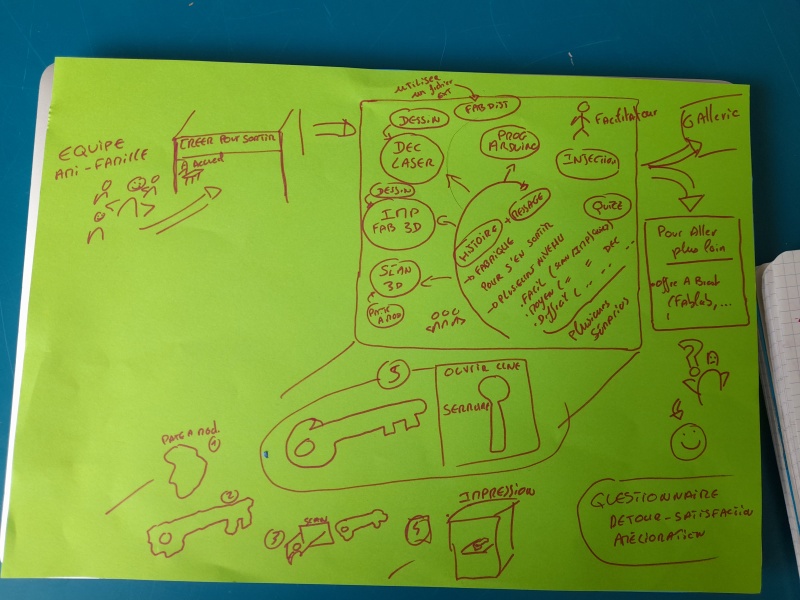 EQUIPE
AMI-FAMILLE
CREER POUR SORTIR
Accueil
UTILISER
un fichier
EXT
FAB DIST
DESSIN
DEC
LASER
PROG
ARDUINO
Facilitateur
INJECTION
DESSIN
IMP
FAB 3D
SCAN
3D
PATE
A MOD
HISTOIRE + MESSAGE
QUIZZ
→ FABRIQUE
POUR S'EN SORTIR
→ PLUSIEURS NIVEAU
. FACIL (SCAN/IMP/
. MOYEN ( " = DEC
. Difficil (
plusieurs
SCÉNARIOS
GAllerie
Pour Aller
plus loin
offre A Brest
(Fablab, ...
5
OUVRIR
SERRURE
PATE A MOD.
1
2
3
SCAN
IMPRESSION
?
QUESTIONNAIRE
DETOUR-SATISFACTION
AMÉLIORATION